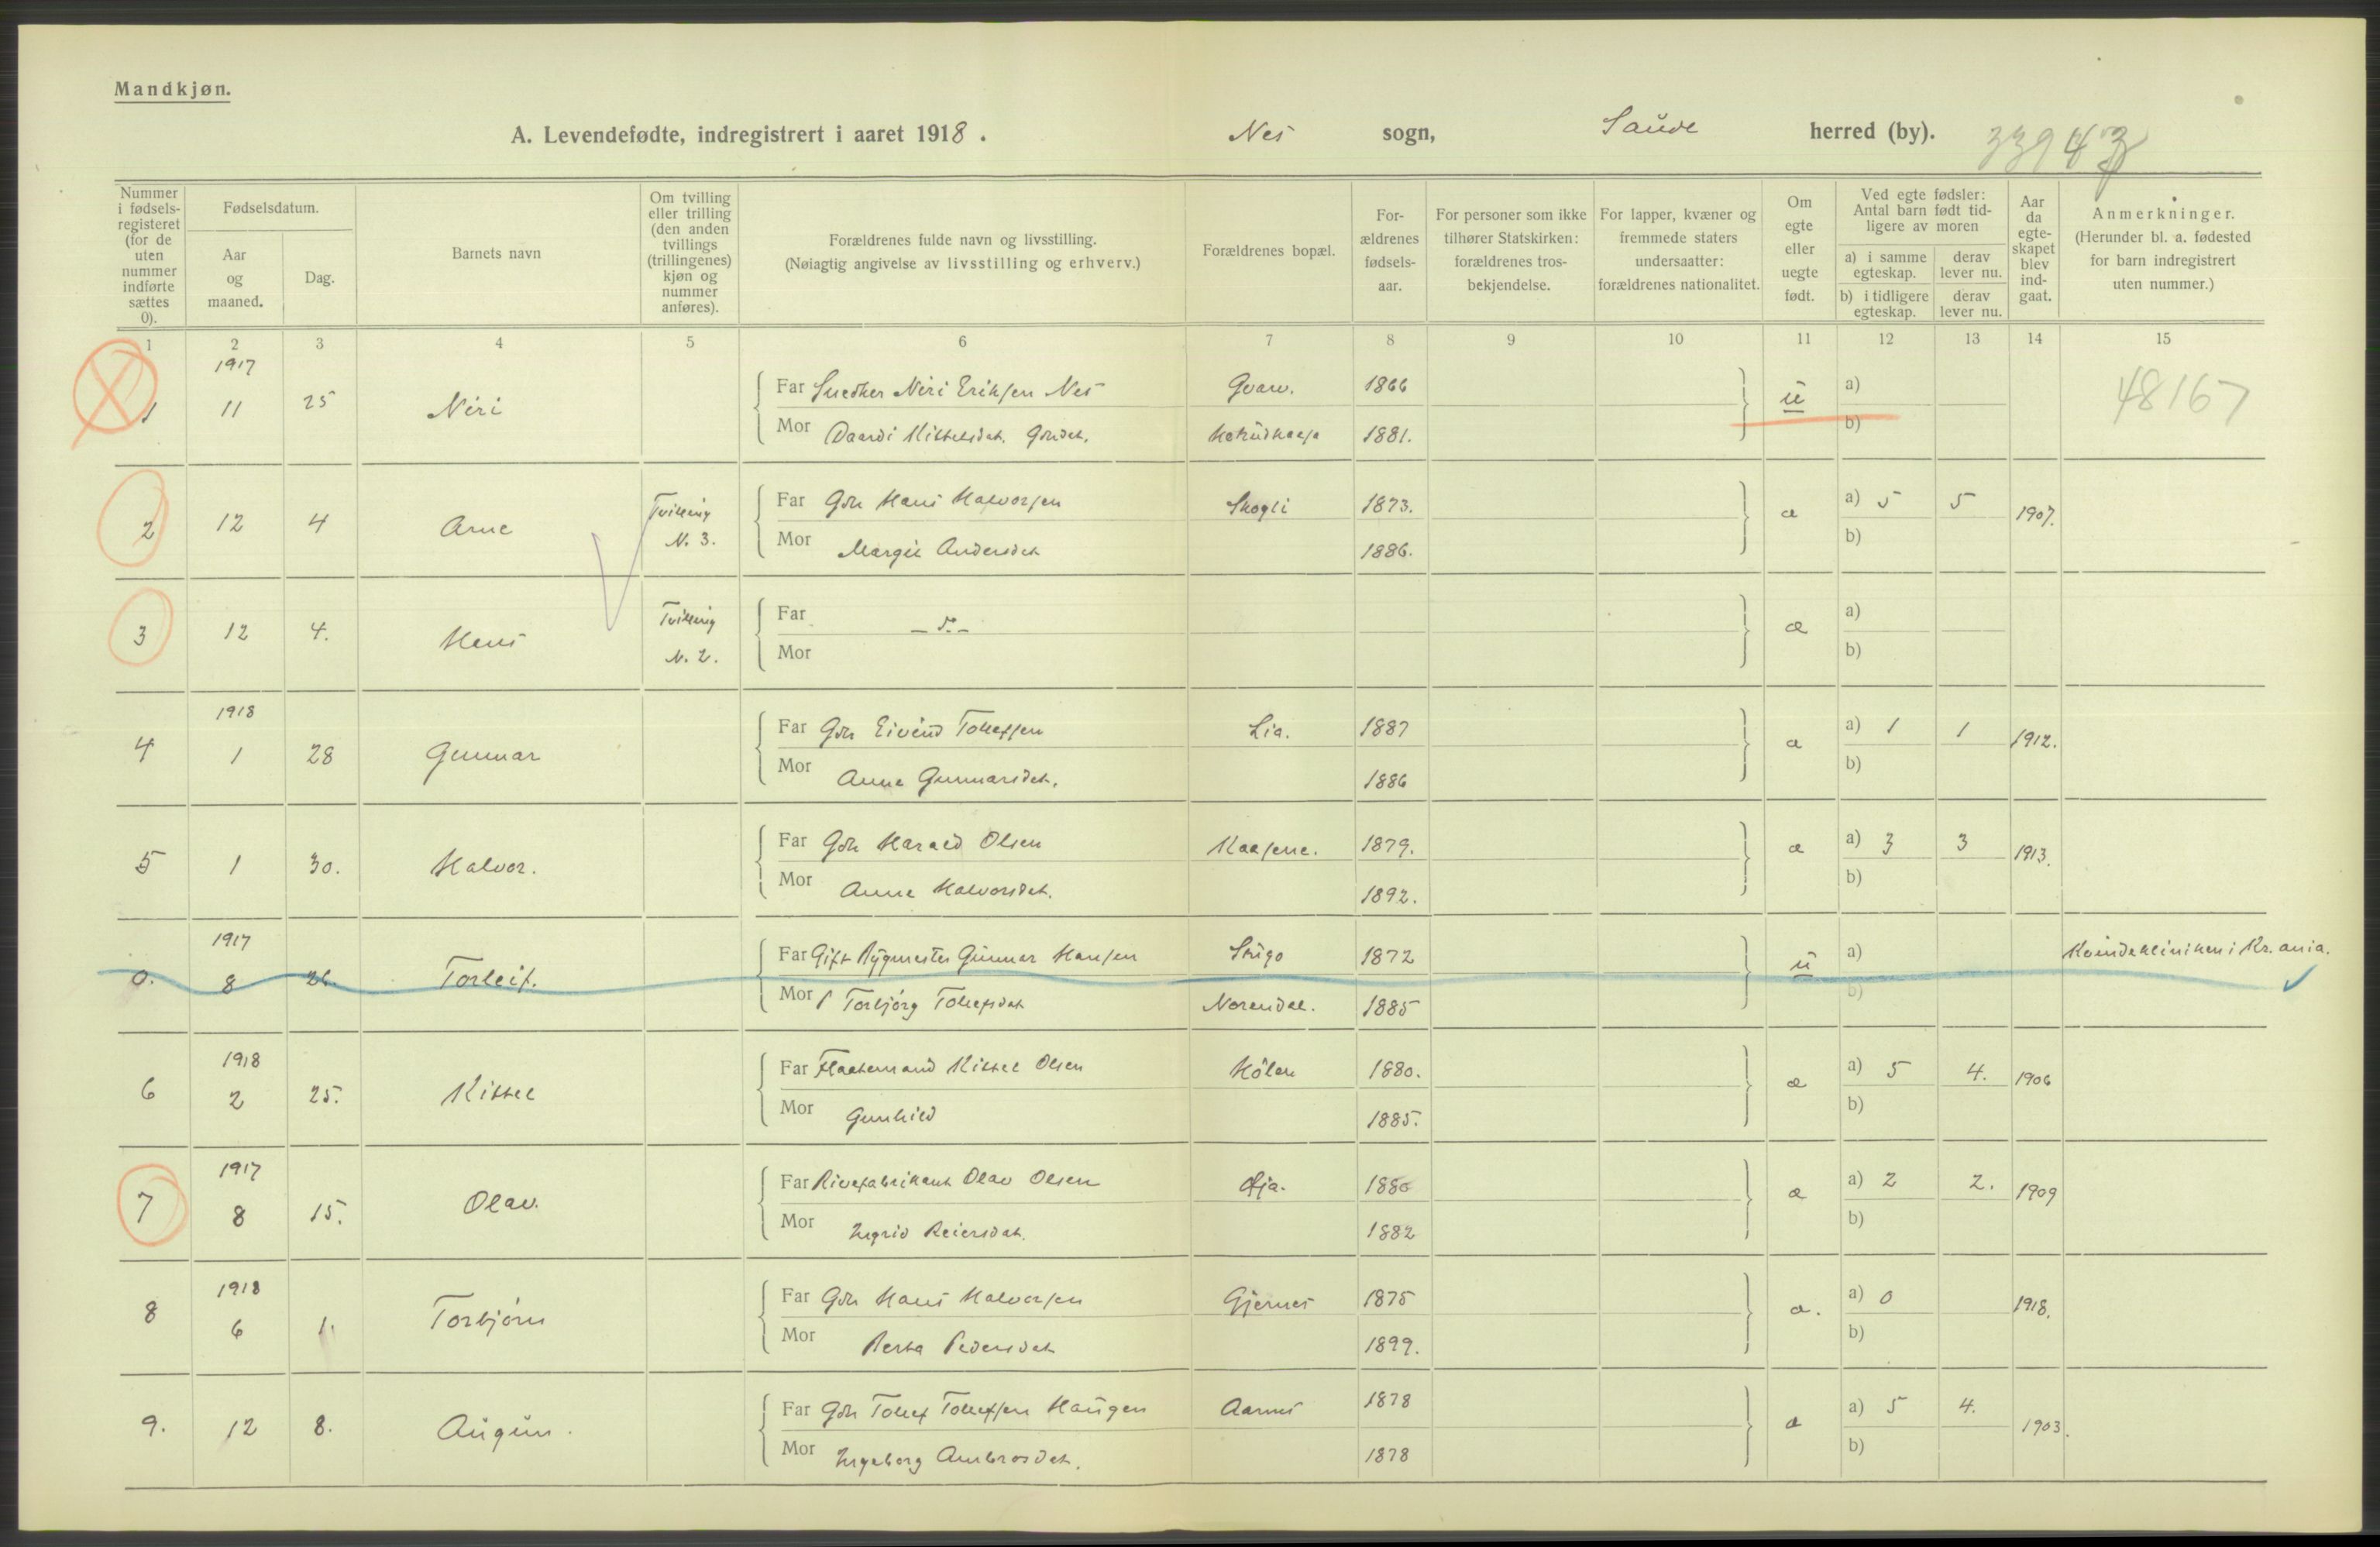 Mandkjøn.
A. Levendefødte, indregistrert i aaret 1918. Nes sogn, Saude herred (by). 33943
Nummer i fødsels-registeret (for de uten nummer indførte sættes 0).
Fødselsdatum.
Aar og maaned.
Dag.
Barnets navn
Om tvilling eller trilling (den anden tvillings (trillingenes) kjøn og nummer anføres).
Forældrenes fulde navn og livsstilling.
(Nøiagtig angivelse av livsstilling og erhverv.)
Forældrenes bopæl.
For-ældrenes fødsels-aar.
For personer som ikke tilhører Statskirken: forældrenes tros-bekjendelse.
For lapper, kvæner og fremmede staters undersaatter: forældrenes nationalitet.
Om egte eller uegte født.
Ved egte fødsler: Antal barn født tid-ligere av moren
a) i samme egteskap. derav lever nu.
b) i tidligere egteskap. derav lever nu.
Aar da egte-skapet blev ind-gaat.
Anmerkninger.
(Herunder bl. a. fødested for barn indregistrert uten nummer.)
1 2 3 4 5 6 7 8 9 10 11 12 13 14 15
1917
1 11 25 Neri Far Snedker Neri Eriksen Nes Gvarv. 1866 u a) 48167
Mor Kittelsdat. Gdrdat. 1881. b)
2 12 4 Arne Tvilling N. 3. Far Gdr Hans Halvorsen Skogli 1873. æ a) 5 5 1907.
Mor Margit Andersdat 1886. b)
3 12 4. Hans Tvilling N. 2. Far æ a)
Mor b)
1918
4 1 28 Gunnar Far Gdr Eivind Tollefsen Lia. 1887 æ a) 1 1 1912.
Mor Anne Gunnarsdat. 1886 b)
5 1 30. Halvor. Far Gdr Harald Olsen Kaasene. 1879. æ a) 3 3 1913.
Mor Anne Halvorsdat. 1892. b)
1917
0. 8 26. Torleif. Far Gift Bygmester Gunnar Hansen 1872 u a) Kvindekliniken i Kr.ania.
Mor Torbjørg Tollefsdat Norendal. 1885 b)
1918
6 2 25. Kittel Far Fløttemand Kittel Olsen Hólen 1880. æ a) 5 4. 1906
Mor Gunhild 1885. b)
1917
7 8 15. Olav. Far Rivefabrikant Olav Olsen 1880 æ a) 2 2. 1909
Mor Ingrid Reiersdat. 1882 b)
1918
8 6 1. Torbjørn Far Gdr Hans Halvorsen Gjernes 1875 æ. a) 0 1918.
Mor Berta Pedersdat 1899. b)
9. 12 8. Augun. Far Gdr Tollef Tollefsen Haugen Aarnes 1878 æ a) 5 4. 1903.
Mor Ingeborg Ambrosdat. 1878 b)